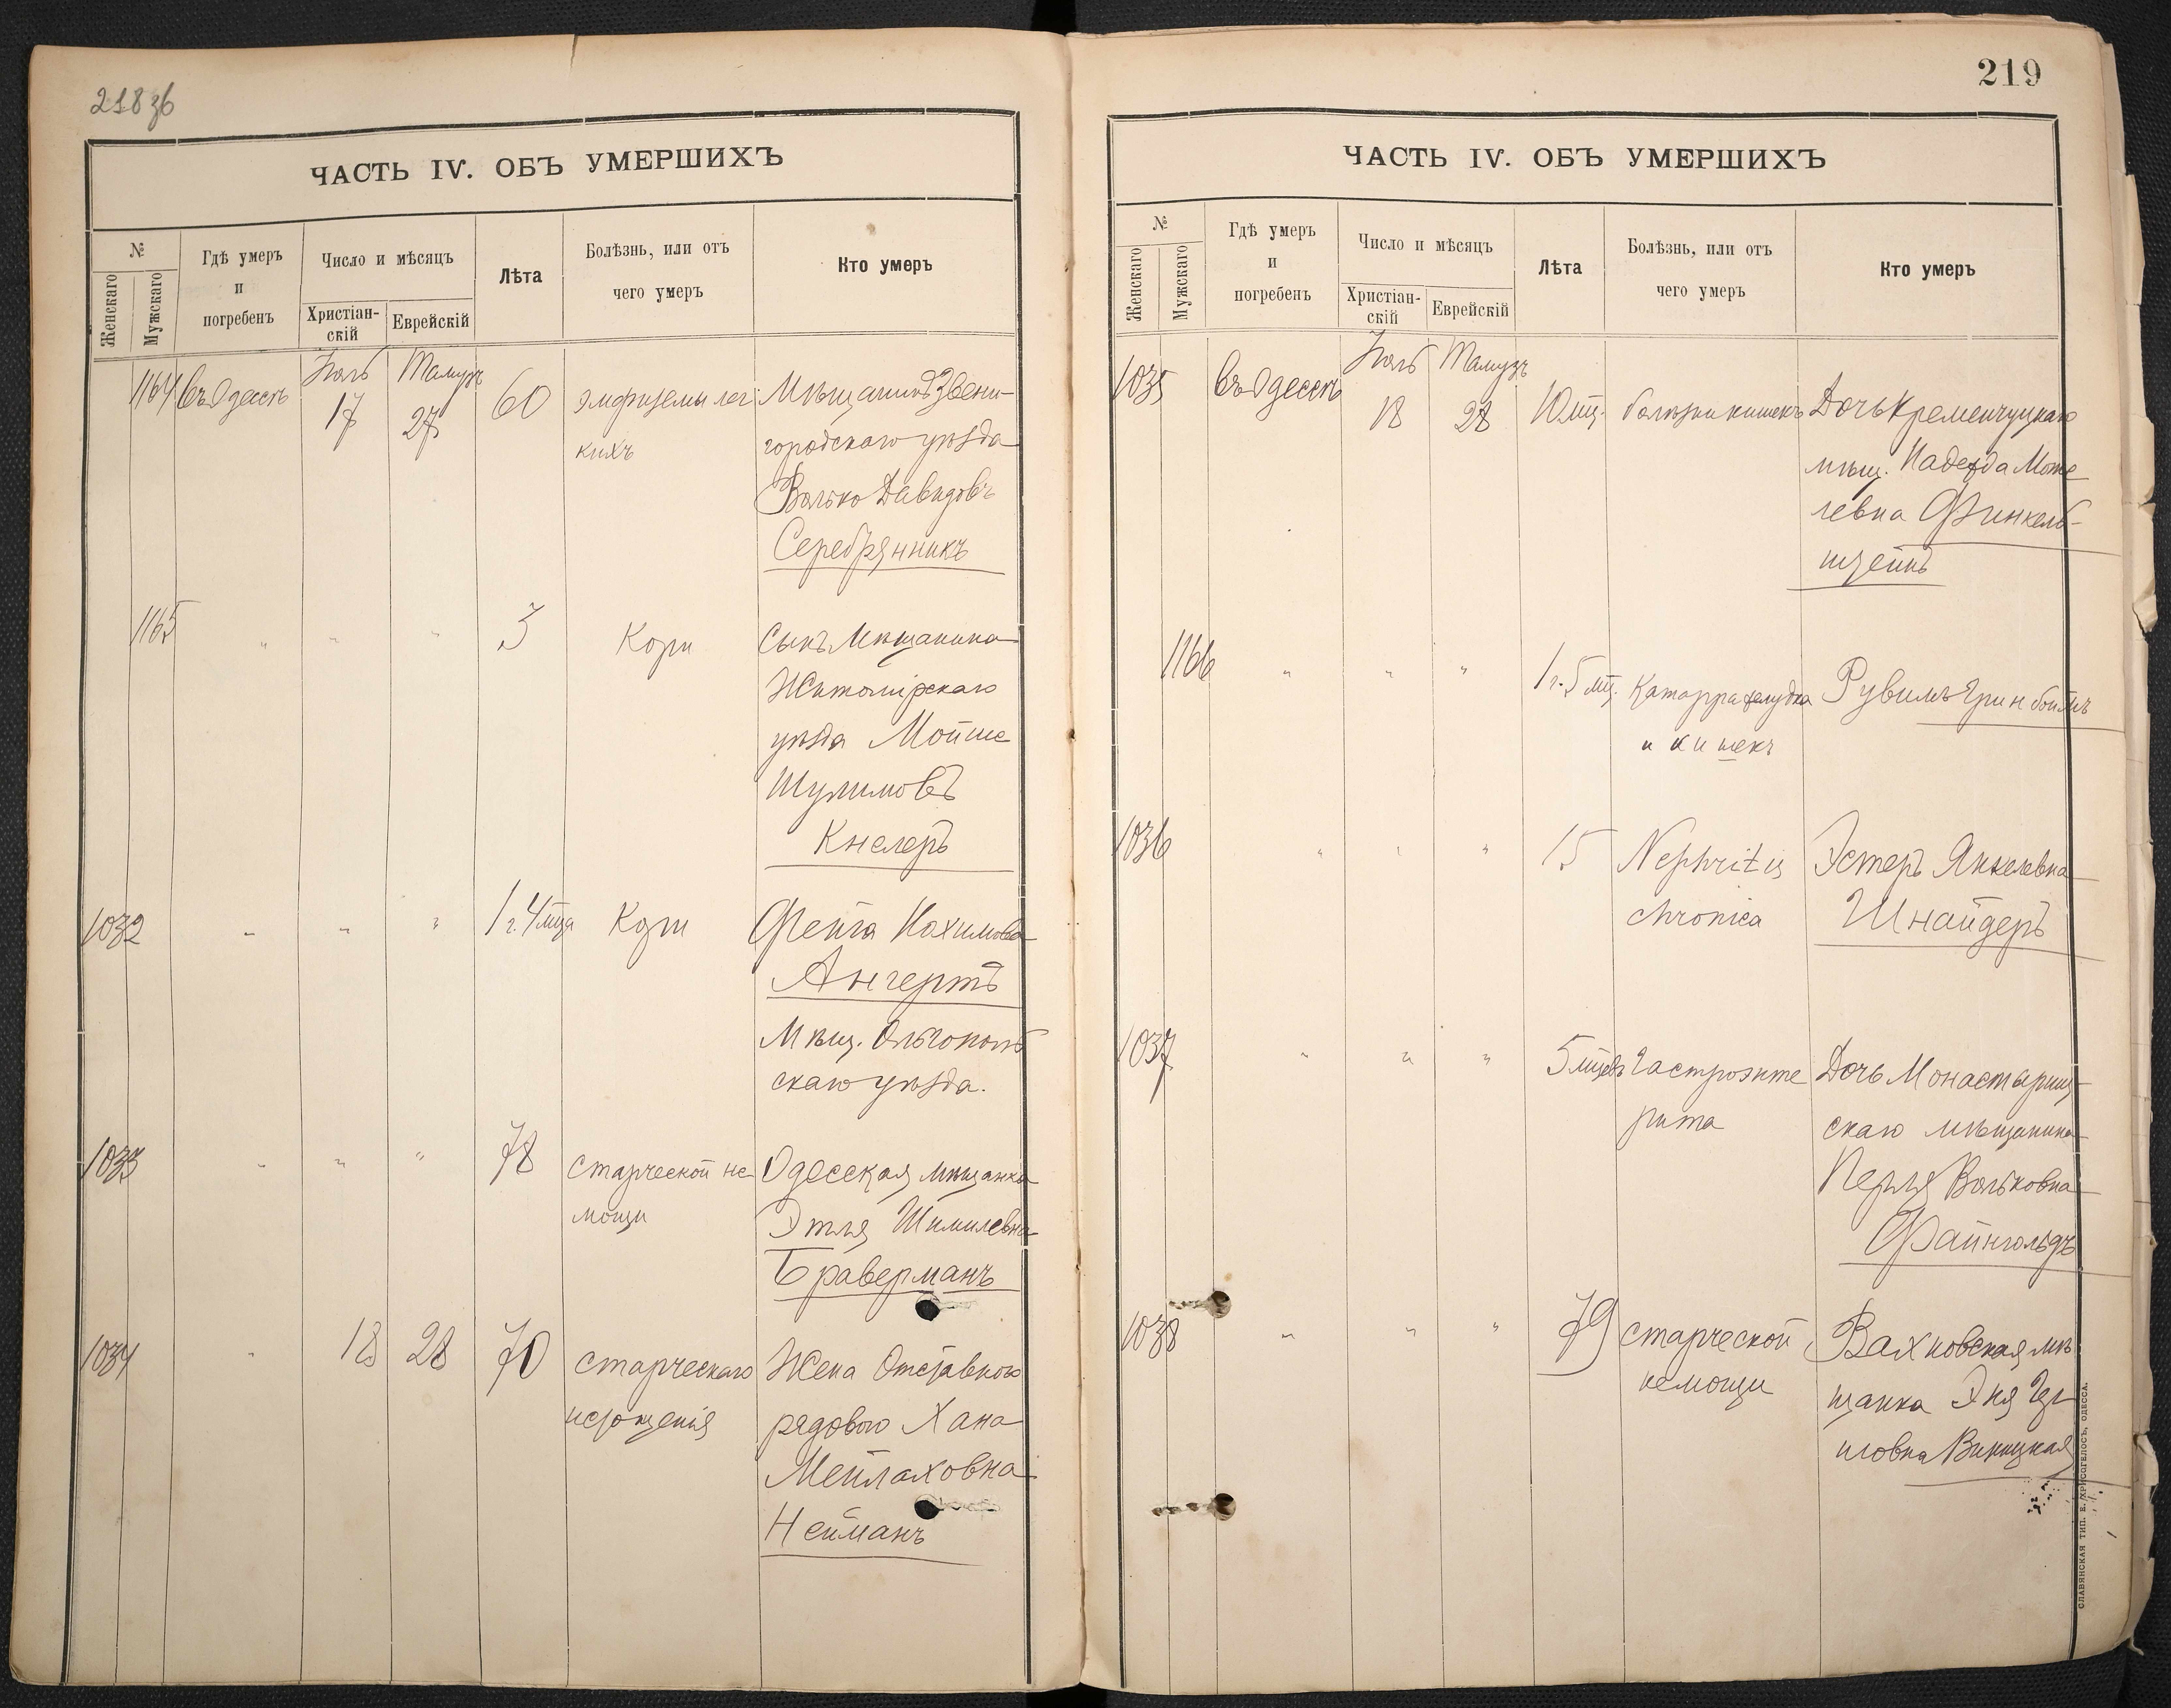 218 зб
ЧАСТЬ IV. ОБЪ УМЕРШИХЪ
№
Женскаго
Мужскаго
Гдѣ умеръ
и
погребенъ
Число и мѣсяцъ
Христіан-
скій
Еврейскій
Лѣта
Болѣзнь, или отъ
чего умеръ
Кто умеръ
1164 въ Одессѣ Іюль 17 Тамузъ 27 60 эмфиземы лег
кихъ
Мѣщанинъ Звени-
городскаго уѣзда
Волько Давидовъ
Серебрянникъ
1165 " " " 3 Кори Сынъ Мѣщанина
Житомірскаго
уѣзда Мойше
Шулимовъ
Кнелеръ
1032 " " " 1 г. 4 мца Кори Фейга Нахимова
Ангертъ
Мѣщ. Ольгополь
скаго уѣзда.
1033 " " " 78 старческой не
мощи
Одесская мѣщанка
Этля Шмилевна
Браверманъ
1034 " 18 28 70 старческаго
истощенія
Жена Отставного
рядового Хана
Мейлаховна
Нейманъ
219
ЧАСТЬ IV. ОБЪ УМЕРШИХЪ
№
Женскаго
Мужскаго
Гдѣ умеръ
и
погребенъ
Число и мѣсяцъ
Христіан-
скій
Еврейскій
Лѣта
Болѣзнь, или отъ
чего умеръ
Кто умеръ
1035 въ Одессѣ Іюль 18 Тамузъ 28 10 мц. болѣзни кишекъ Дочь Кременчуцкаго
мѣщ. Надежда Моше
левна Финкель-
штейнъ
1166 " " " 1 г. 5 мц. Катарра желудка
и кишекъ
Рувимъ Гринбоймъ
1036 " " " 15 Nephritis
chronica
Эстеръ Янкелевна
Шнайдеръ
1037 " " " 5 мцевъ Гастроэнте
рита
Дочь Монастырищ-
скаго мѣщанина
Перля Вольковна
Файнгольдъ
1038 " " " 79 старческой
немощи
Вахновская мѣ
щанка Эня
Винницкая
СЛАВЯНСКАЯ ТИП. Е. ХРИСОГЕЛОСЪ, ОДЕССА.